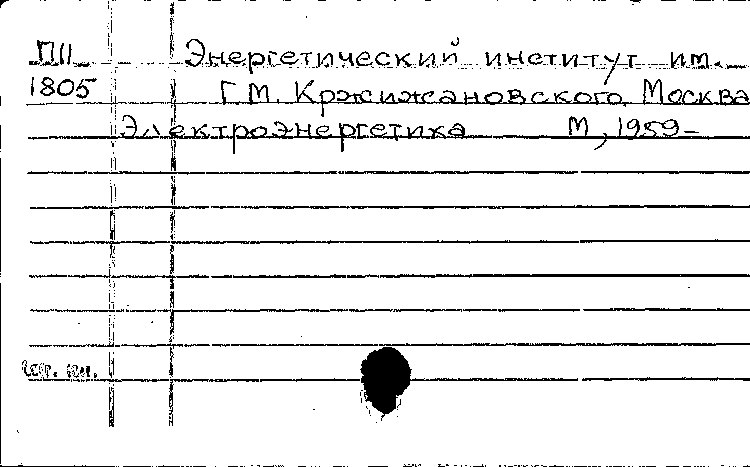 ПII Энергетический институт им.
1805 Г.М. Кржижановского. Москва
Электроэнергетика М, 1959-